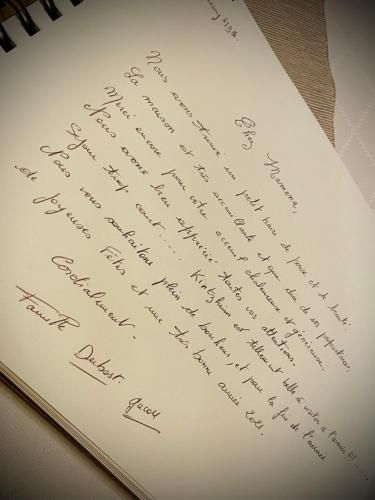 Chez Mamema,
Nous avons trouvé un petit havre de paix et de beauté.
La maison est très accueillante et que dire de ses propriétaires.
Merci encore pour votre accueil chaleureux et généreux.
Nous avons bien apprécié toutes vos attentions.
Séjour trop court..... Kintzheim est tellement belle à visiter à l'avenir!!!.....
Nous vous souhaitons plein de bonheur et pour la fin de l'année
de joyeuses Fêtes et une très bonne année 2021.
Cordialement.
Famille Dubost.